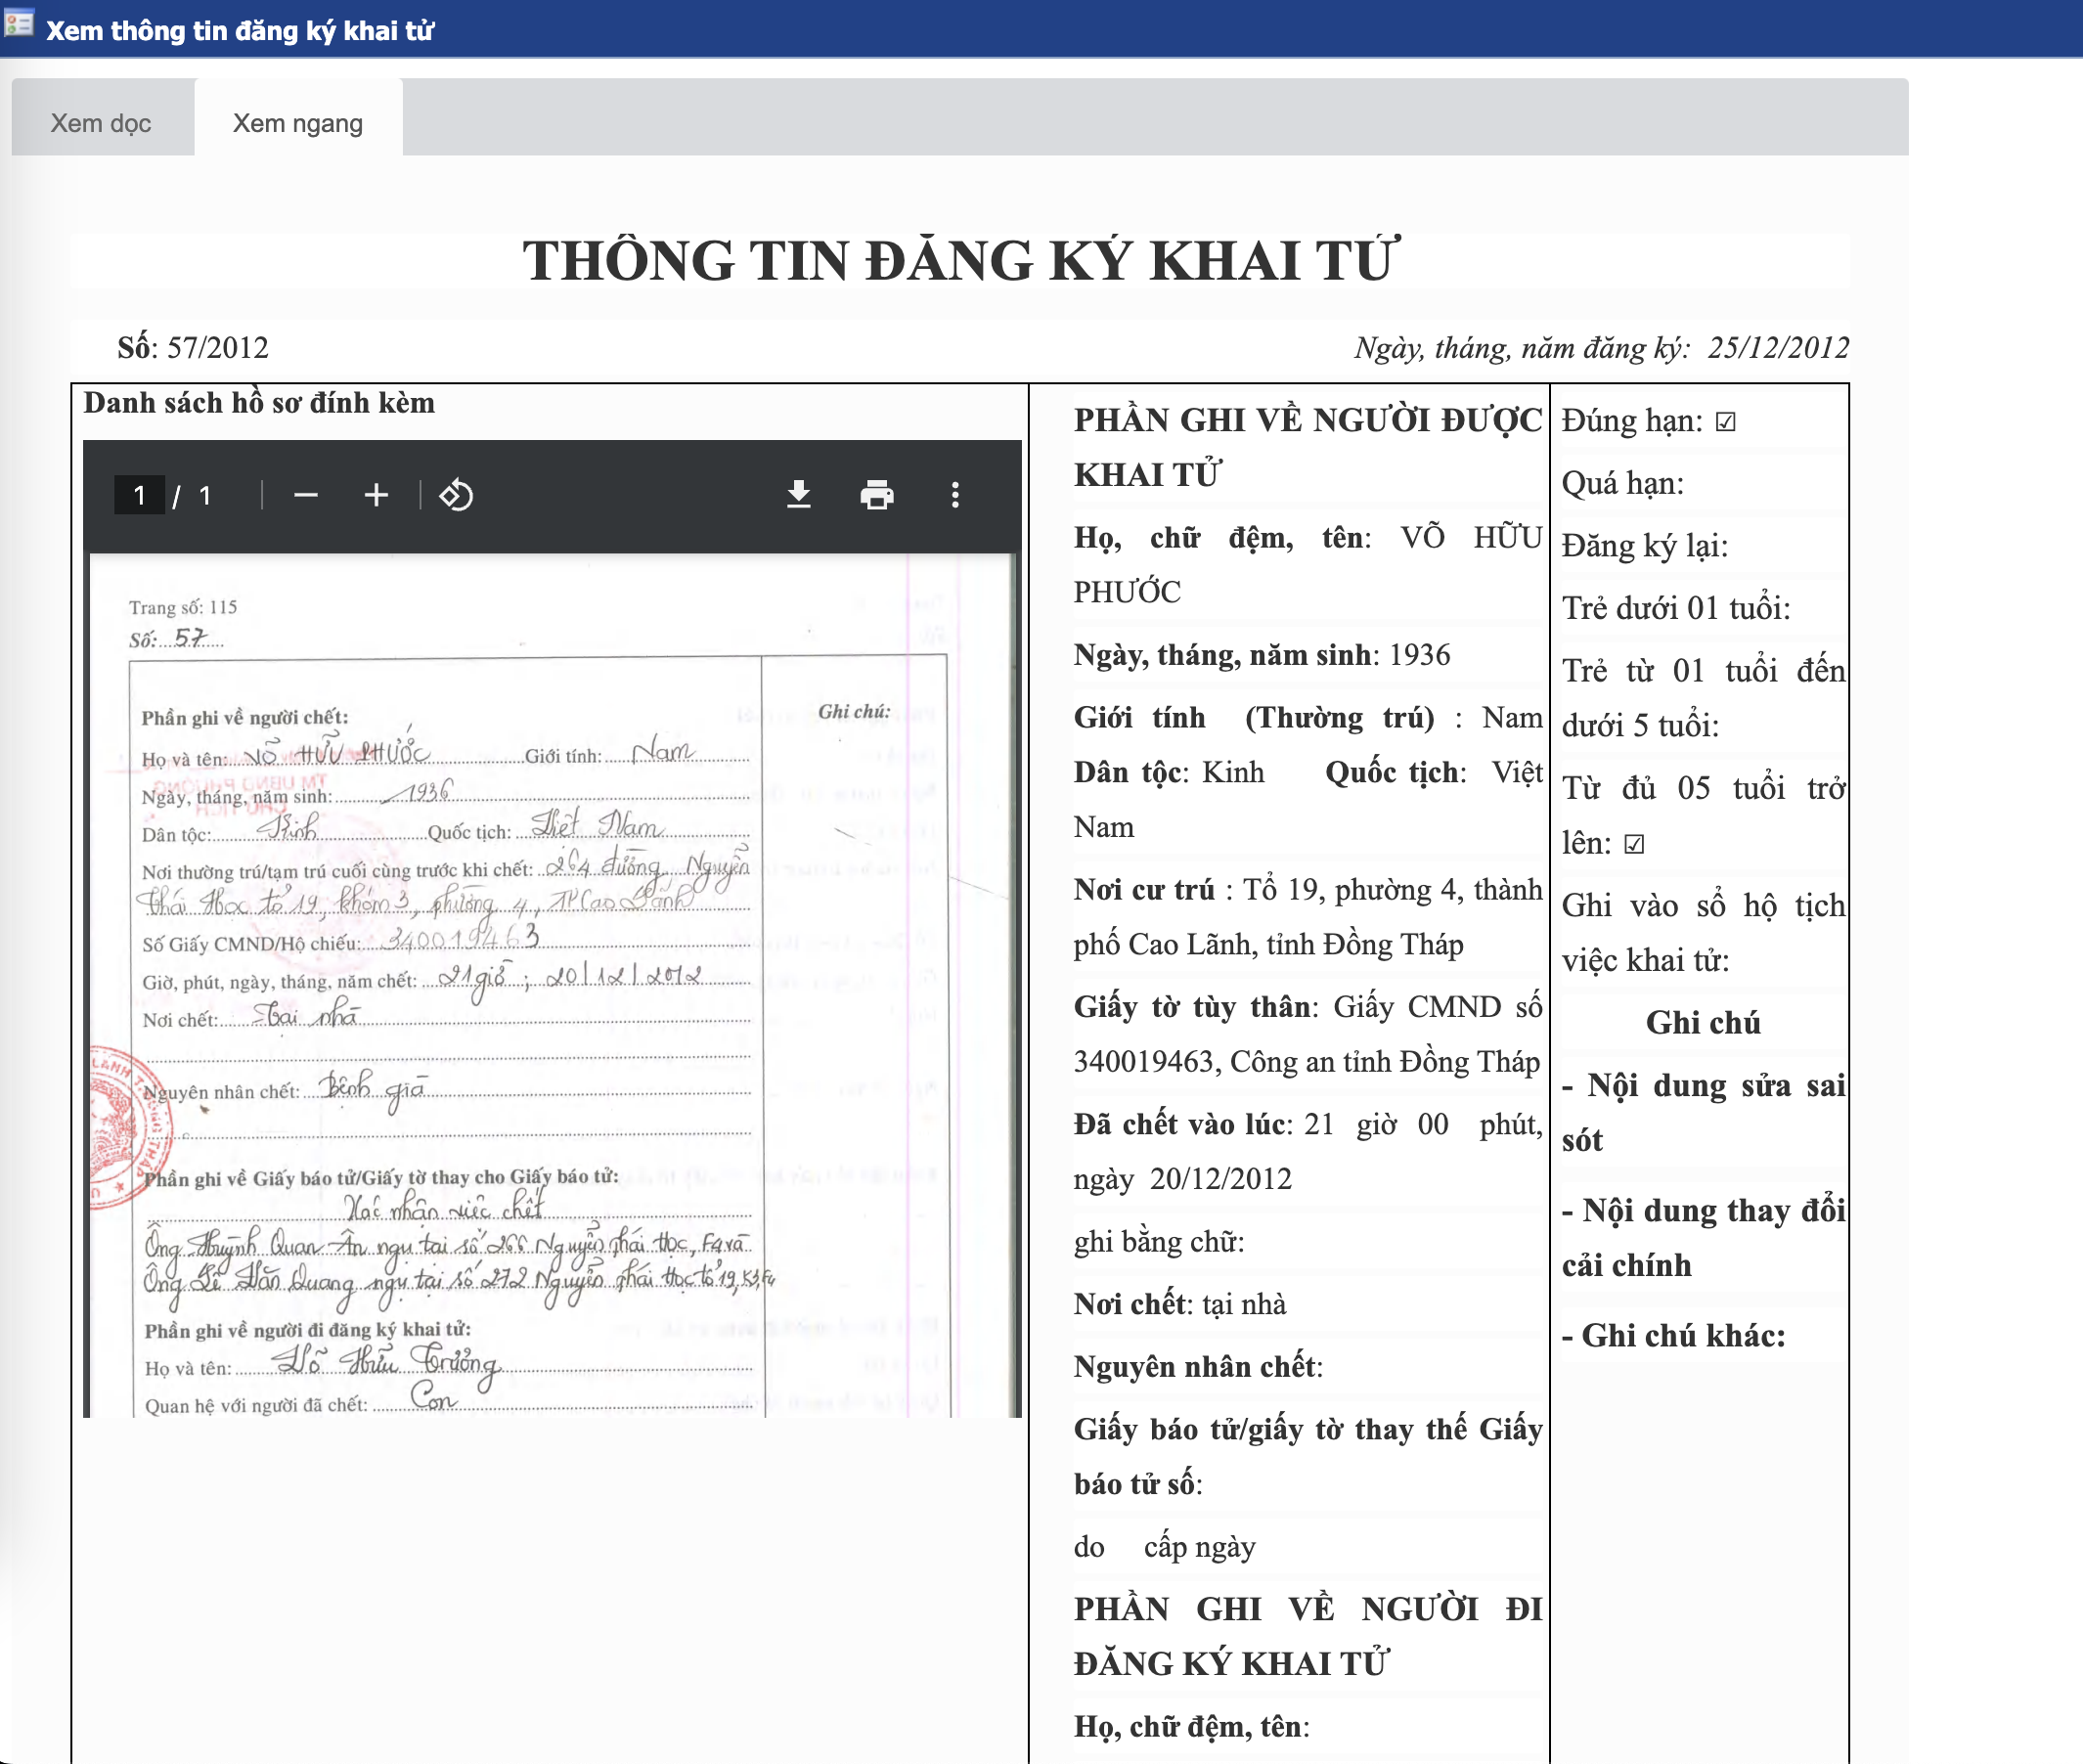 Xem thông tin đăng ký khai tử
Xem dọc
Xem ngang
THÔNG TIN ĐĂNG KÝ KHAI TỬ
Số: 57/2012
Ngày, tháng, năm đăng ký: 25/12/2012
Danh sách hồ sơ đính kèm
1 / 1
Trang số: 115
Số: 57
Phần ghi về người chết:
Ghi chú:
Họ và tên: VÕ HỮU PHƯỚC Giới tính: Nam
Ngày, tháng, năm sinh: 1936
Dân tộc: Kinh Quốc tịch: Việt Nam
Nơi thường trú/tạm trú cuối cùng trước khi chết: 264 đường Nguyễn
Thái Học tổ 19, khóm 3, phường 4, TP Cao Lãnh
Số Giấy CMND/Hộ chiếu: 340019463
Giờ, phút, ngày, tháng, năm chết: 21 giờ ; 20/12/2012
Nơi chết: Tại nhà
Nguyên nhân chết: Bệnh già
Phần ghi về Giấy báo tử/Giấy tờ thay cho Giấy báo tử:
Xác nhận việc chết
Ông Huỳnh Quan Ân ngụ tại số 266 Nguyễn Thái Học, F4 và
Ông Lê Văn Quang ngụ tại số 272 Nguyễn Thái Học tổ 19, K3, F4
Phần ghi về người đi đăng ký khai tử:
Họ và tên: Võ Hữu Trường
Quan hệ với người đã chết: Con
PHẦN GHI VỀ NGƯỜI ĐƯỢC
KHAI TỬ
Họ, chữ đệm, tên: VÕ HỮU
PHƯỚC
Ngày, tháng, năm sinh: 1936
Giới tính (Thường trú) : Nam
Dân tộc: Kinh Quốc tịch: Việt
Nam
Nơi cư trú : Tổ 19, phường 4, thành
phố Cao Lãnh, tỉnh Đồng Tháp
Giấy tờ tùy thân: Giấy CMND số
340019463, Công an tỉnh Đồng Tháp
Đã chết vào lúc: 21 giờ 00 phút,
ngày 20/12/2012
ghi bằng chữ:
Nơi chết: tại nhà
Nguyên nhân chết:
Giấy báo tử/giấy tờ thay thế Giấy
báo tử số:
do cấp ngày
PHẦN GHI VỀ NGƯỜI ĐI
ĐĂNG KÝ KHAI TỬ
Họ, chữ đệm, tên:
Đúng hạn: ☑
Quá hạn:
Đăng ký lại:
Trẻ dưới 01 tuổi:
Trẻ từ 01 tuổi đến
dưới 5 tuổi:
Từ đủ 05 tuổi trở
lên: ☑
Ghi vào sổ hộ tịch
việc khai tử:
Ghi chú
- Nội dung sửa sai
sót
- Nội dung thay đổi
cải chính
- Ghi chú khác: